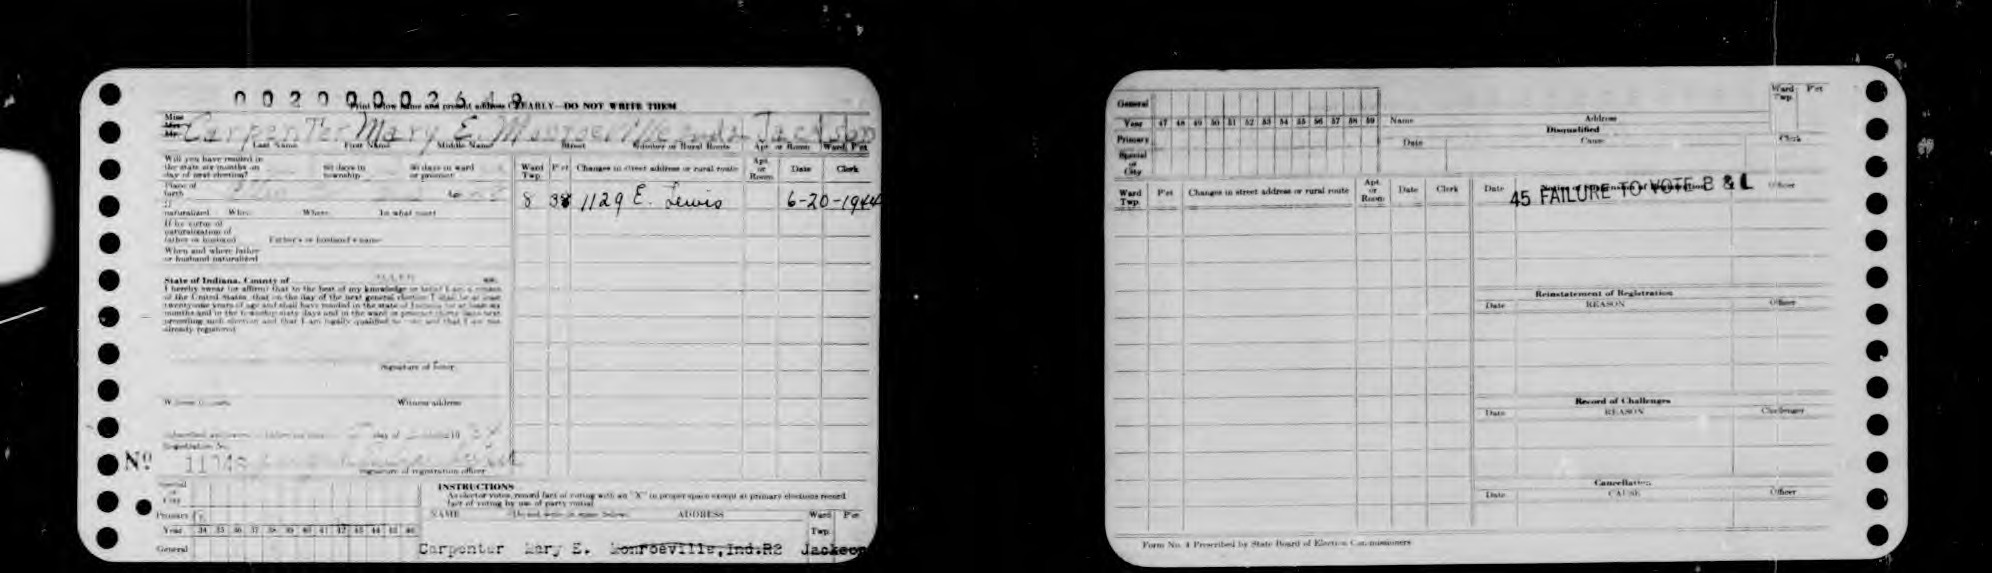 0 0 2 0 0 0 0 2 6 4 9
Print below name and present address CLEARLY—DO NOT WRITE THEM
Miss
Mrs
Mr.
Carpenter Mary E. Monroeville Ind. Jackson
Last Name First Name Middle Name Street Number or Rural Route Apt. or Room Ward P'ct
Will you have resided in
the state six months on
day of next election? 60 days in
township 30 days in ward
or precinct
Place of
birth Age
If
naturalized When Where In what court
If by virtue of
naturalization of
father or husband Father's or husband's name
When and where father
or husband naturalized
Ward
Twp. P'ct Changes in street address or rural route Apt.
or
Room Date Clerk
8 38 1129 E. Lewis 6-20-1944
State of Indiana, County of ss.
I hereby swear (or affirm) that to the best of my knowledge or belief I am a citizen
of the United States, that on the day of the next general election I shall be at least
twenty-one years of age and shall have resided in the state of Indiana for at least six
months and in the township sixty days and in the ward or precinct thirty days next
preceding such election and that I am legally qualified to vote and that I am not
already registered
Signature of Voter
Witness address
day of
Registration No.
No 11748
Signature of registration officer
Special
or
City
Primary
Year 34 35 36 37 38 39 40 41 42 43 44 45 46
General
INSTRUCTIONS
As elector votes, record fact of voting with an "X" in proper space except at primary elections record
fact of voting by use of party initial
NAME ADDRESS Ward
Twp. P'ct
Carpenter Mary E. Monroeville,Ind.R2 Jackson
General
Year 47 48 49 50 51 52 53 54 55 56 57 58 59
Primary
Special
or
City
Name Address Ward
Twp. P'ct
Disqualified
Date Cause Clerk
Ward
Twp. P'ct Changes in street address or rural route Apt.
or
Room Date Clerk
Date Officer
45 FAILURE TO VOTE B & L
Reinstatement of Registration
Date REASON Officer
Record of Challenges
Date REASON Challenger
Cancellation
Date CAUSE Officer
Form No. 4 Prescribed by State Board of Election Commissioners